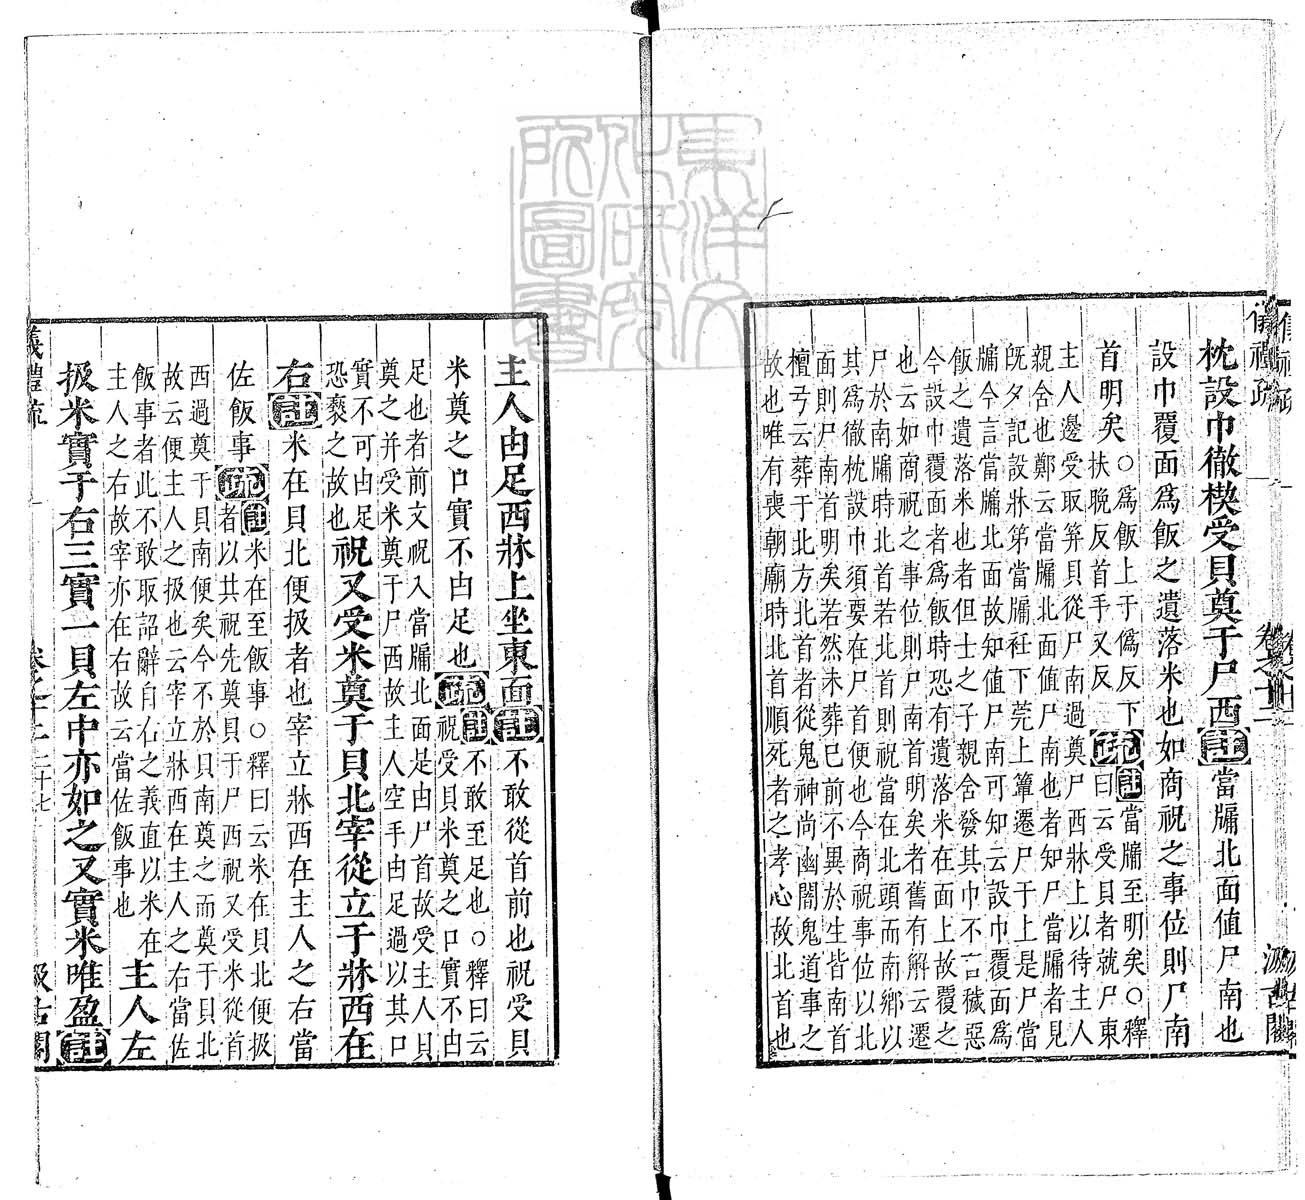 儀禮疏 卷之十二 汲古閣
枕設巾徹楔受貝奠于尸西註當牖北面值尸南也
設巾覆面爲飯之遺落米也如商祝之事位則尸南
首明矣○爲飯上于僞反下
扶晚反首手又反
疏註當牖至明矣○釋
曰云受貝者就尸東
主人邊受取笲貝從尸南過奠尸西牀上以待主人
親含也鄭云當牖北面値尸南也者知尸當牖者見
旣夕記設牀第當牖衽下莞上簟遷尸于上是尸當
牖今言當牖北面故知値尸南可知云設巾覆面爲
飯之遺落米也者但士之子親含發其巾不合穢惡
今設巾覆面者爲飯時恐有遺落米在面上故覆之
也云如商祝之事位則尸南首明矣者舊有解云遷
尸於南牖時北首若北首則祝當在北頭而南鄉以
其爲徹枕設巾須要在尸首便也今商祝事位以北
面則尸南首明矣若然未葬已前不異於生皆南首
檀弓云葬于北方北首者從鬼神尚幽闇鬼道事之
故也唯有喪朝廟時北首順死者之孝心故北首也
主人由足西牀上坐東面註不敢從首前也祝受貝
米奠之口實不由足也疏註不敢至足也○釋曰云
祝受貝米奠之口實不由
足也者前文祝入當牖北面是由尸首故受主人貝
奠之并受米奠于尸西故主人空手由足過以其口
實不可由足
恐褻之故也
祝又受米奠于貝北宰從立于牀西在
右註米在貝北便扱者也宰立牀西在主人之右當
佐飯事疏註米在至飯事○釋曰云米在貝北便扱
者以其祝先奠貝于尸西祝又受米從首
西過奠于貝南便矣今不於貝南奠之而奠于貝北
故云便主人之扱也云宰立牀西在主人之右當佐
飯事者此不敢取詔辭自右之義直以米在
主人之右故宰亦在右故云當佐飯事也
主人左
扱米實于右三實一貝左中亦如之又實米唯盈註
儀禮疏 卷之十二 二十七 汲古閣